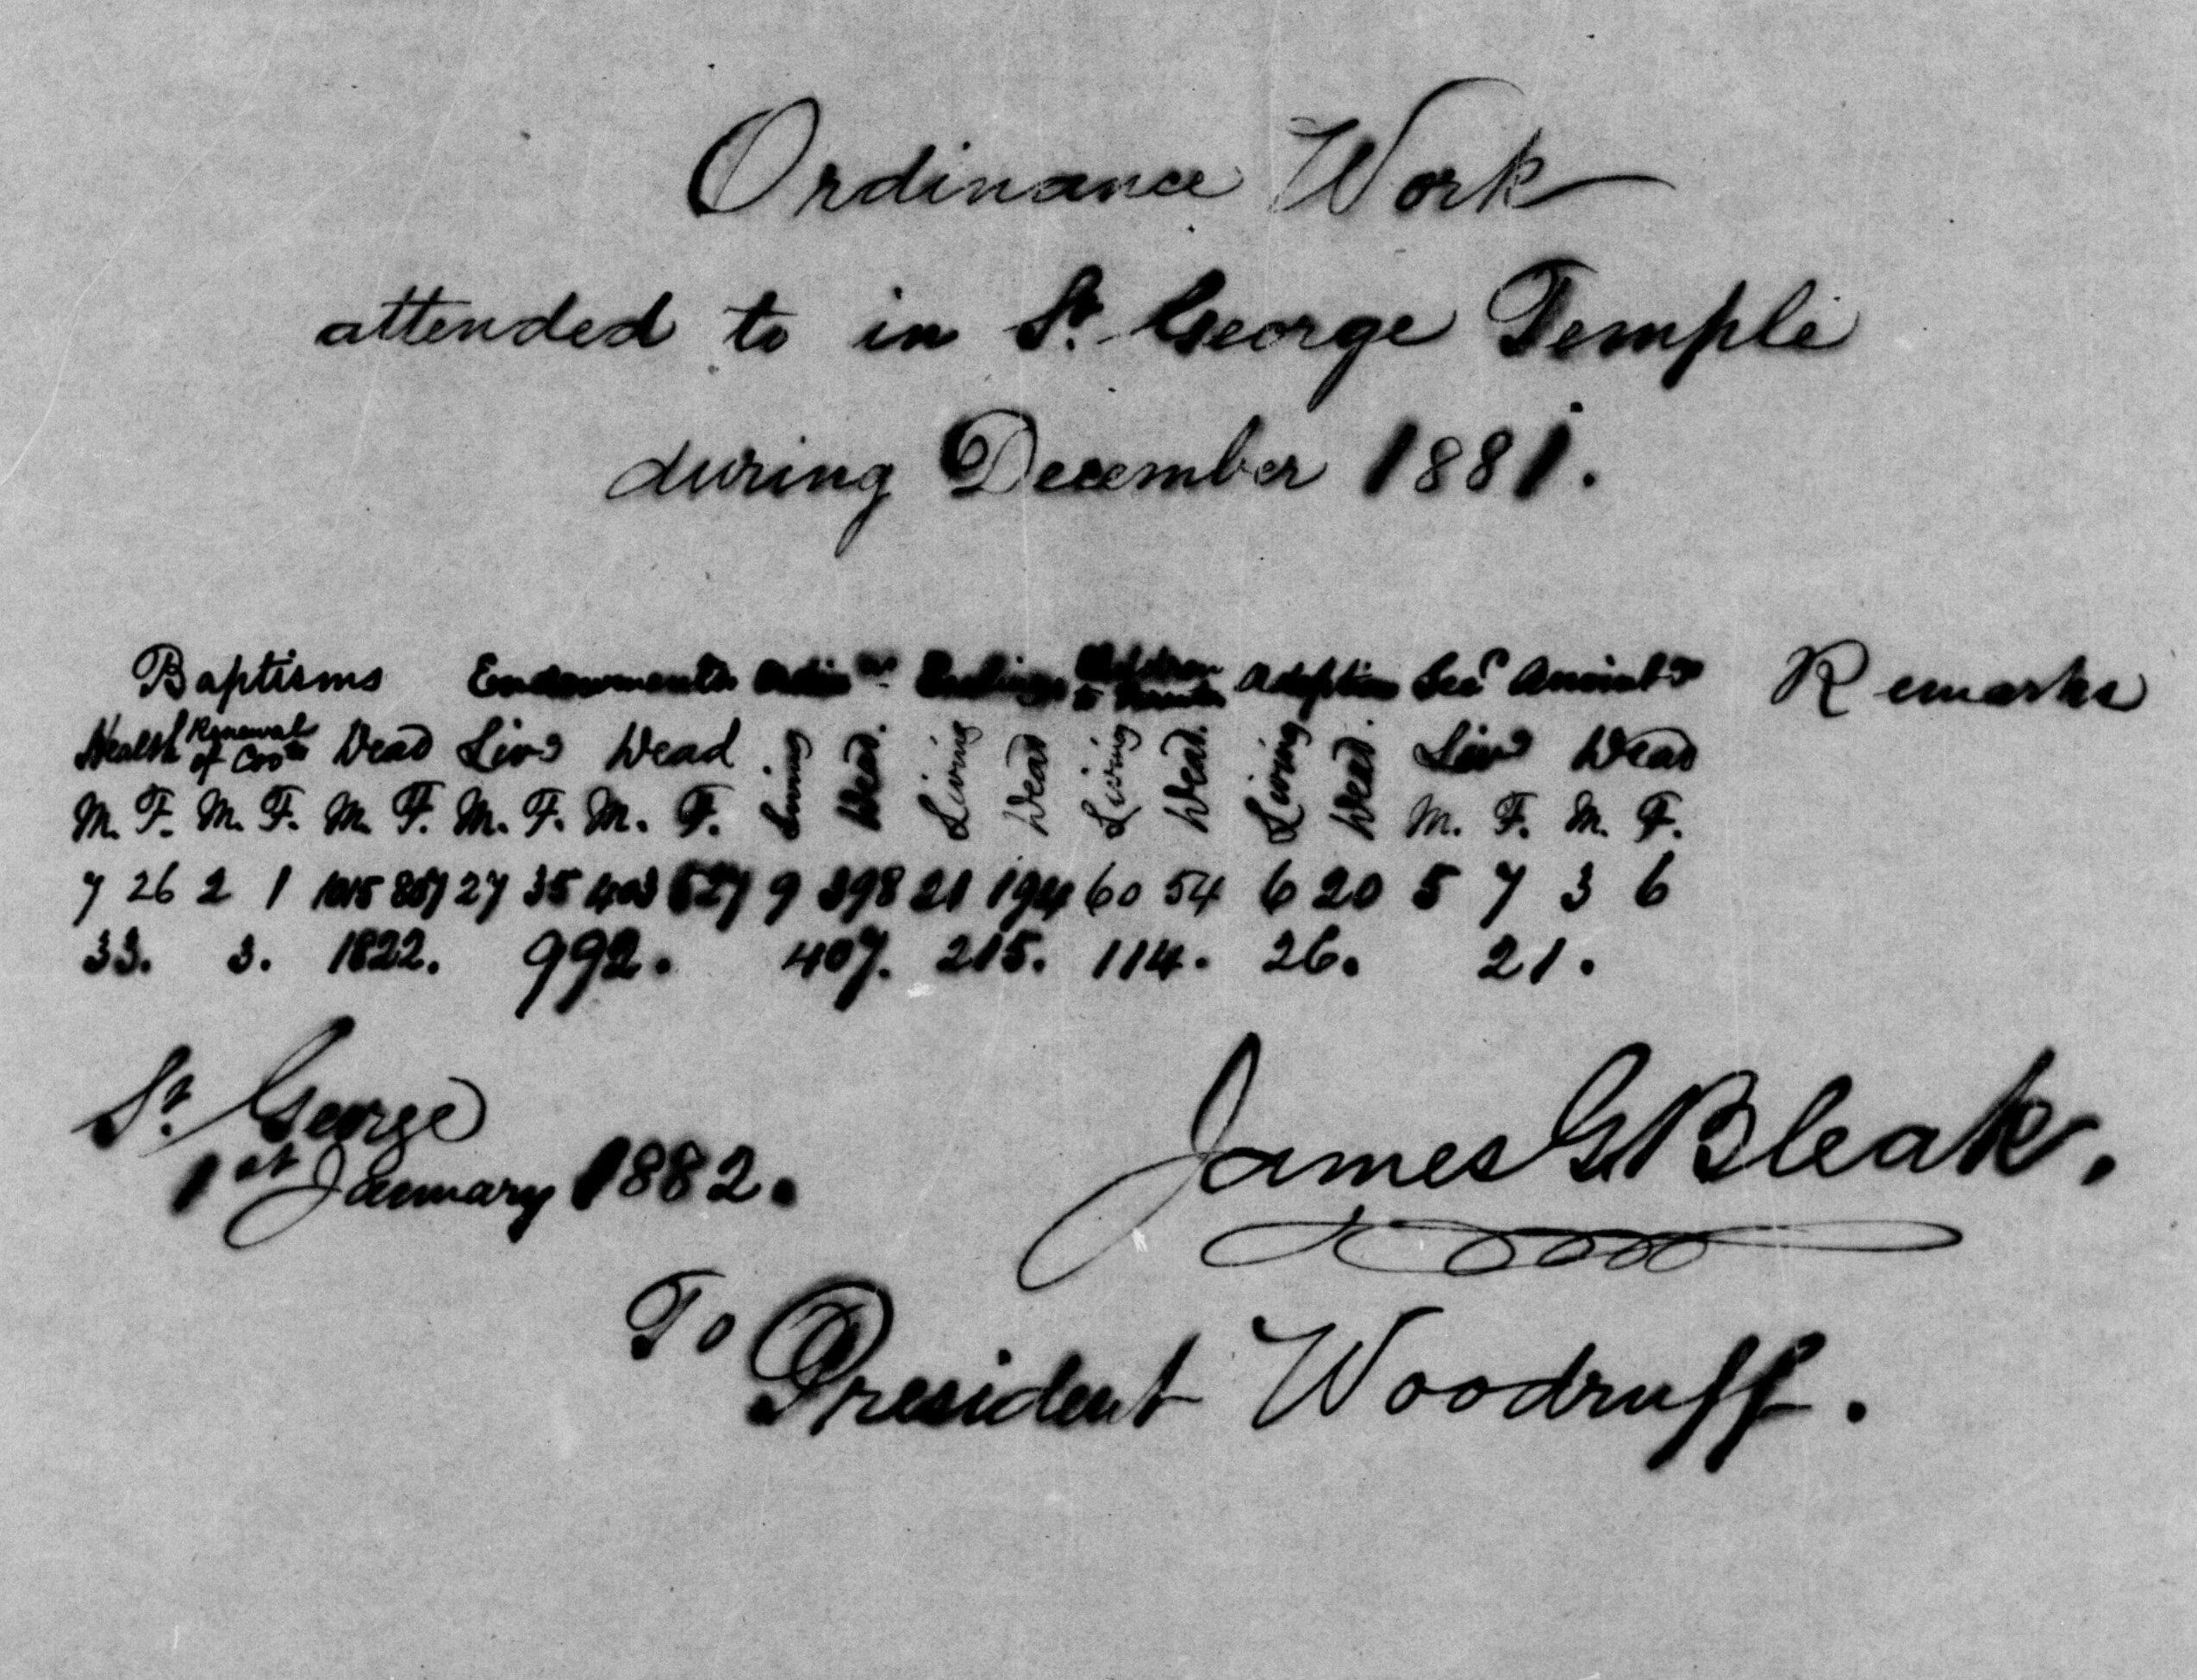 Ordinance Work
attended to in St. George Temple
during December 1881.
Baptisms Endowments Ordin ns Sealings Children to Parents Adoption Secd Anoints Remarks
Health Renewal of Covts Dead Livg Dead Living Dead. Living Dead Living Dead. Living Dead. Livg Dead
M. F. M. F. M. F. M. F. M. F. M. F. M. F.
7 26 2 1 1015 807 27 35 403 527 9 398 21 194 60 54 6 20 5 7 3 6
33. 3. 1822. 992. 407. 215. 114. 26. 21.
St. George
1st January 1882.
James G Bleak.
To
President Woodruff.